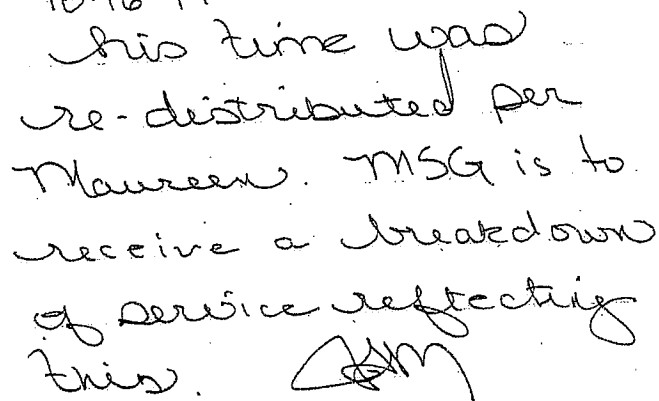 his time was
re-distributed per
Maureen. MSG is to
receive a breakdown
of service reflecting
this.